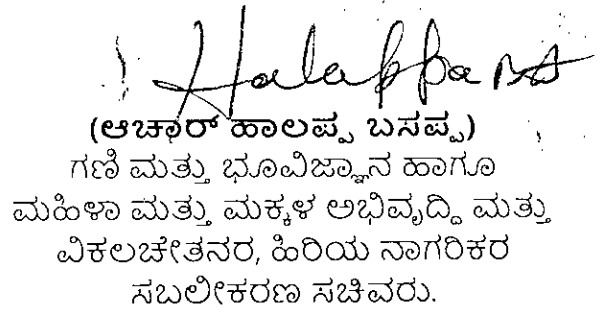 Halappa BA
(ಆಚಾರ್ ಹಾಲಪ್ಪ ಬಸಪ್ಪ)
ಗಣಿ ಮತ್ತು ಭೂವಿಜ್ಞಾನ ಹಾಗೂ
ಮಹಿಳಾ ಮತ್ತು ಮಕ್ಕಳ ಅಭಿವೃದ್ಧಿ ಮತ್ತು
ವಿಕಲಚೇತನರ, ಹಿರಿಯ ನಾಗರಿಕರ
ಸಬಲೀಕರಣ ಸಚಿವರು.